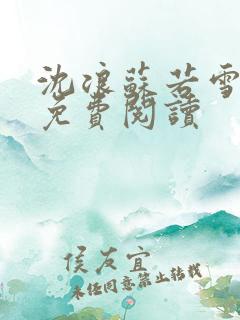 沈浪蘇若雪
免費閱讀
侯友宜
未经同意禁止转载